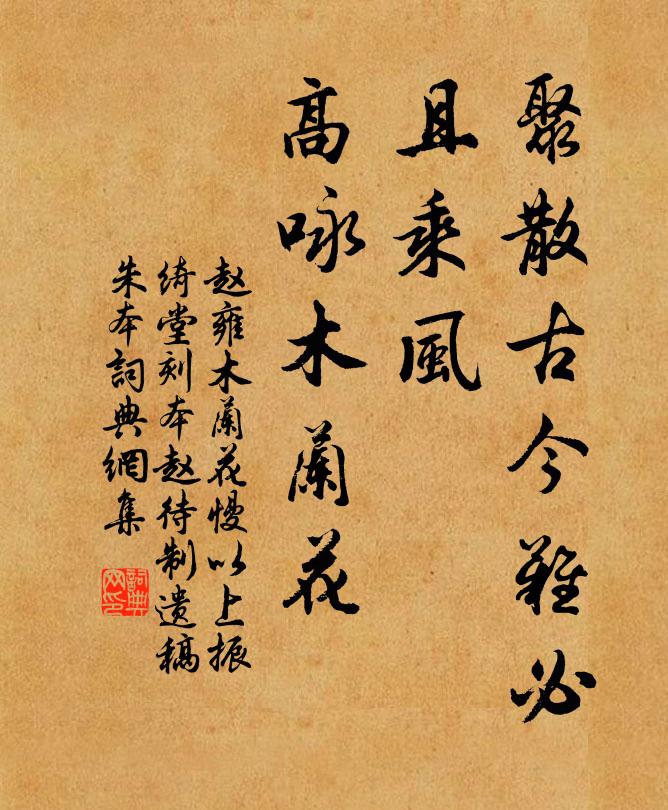 聚散古今難必
且乘風
高咏木蘭花
赵雍木蘭花慢以上振
綺堂刻本赵待制遺稿
朱本詞典網集
詞典网印